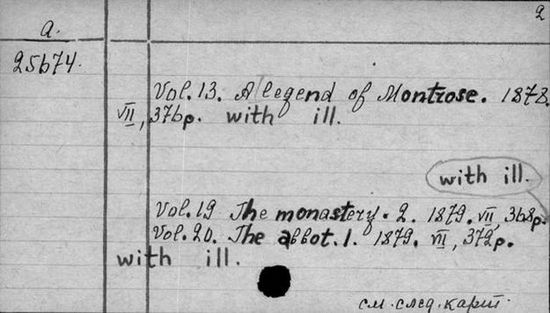 2
a.
25674.
Vol. 13. A legend of Montrose. 1878.
VII, 376p. with ill.
with ill.
Vol. 19 The monastery. 2. 1879. VII, 368p.
Vol. 20. The abbot. 1. 1879. VII, 372p.
with ill.
см. след. карт.